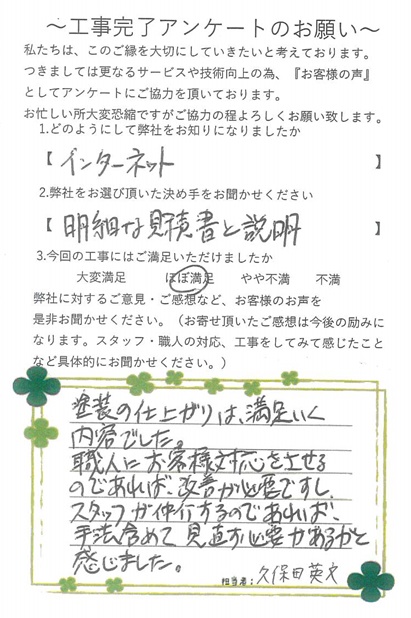 ～工事完了アンケートのお願い～
私たちは、このご縁を大切にしていきたいと考えております。
つきましては更なるサービスや技術向上の為、『お客様の声』
としてアンケートにご協力を頂いております。
お忙しい所大変恐縮ですがご協力の程よろしくお願い致します。
1.どのようにして弊社をお知りになりましたか
【 インターネット 】
2.弊社をお選び頂いた決め手をお聞かせください
【 明細な見積書と説明 】
3.今回の工事にはご満足いただけましたか
大変満足 ほぼ満足 やや不満 不満
弊社に対するご意見・ご感想など、お客様のお声を
是非お聞かせください。（お寄せ頂いたご感想は今後の励みに
なります。スタッフ・職人の対応、工事をしてみて感じたこと
など具体的にお聞かせください。）
塗装の仕上がりは、満足いく
内容でした。
職人にお客様対応をさせる
のであれば、改善が必要ですし、
スタッフが仲介するのであれば、
手法含めて見直す必要があるかと
感じました。
担当者： 久保田英文